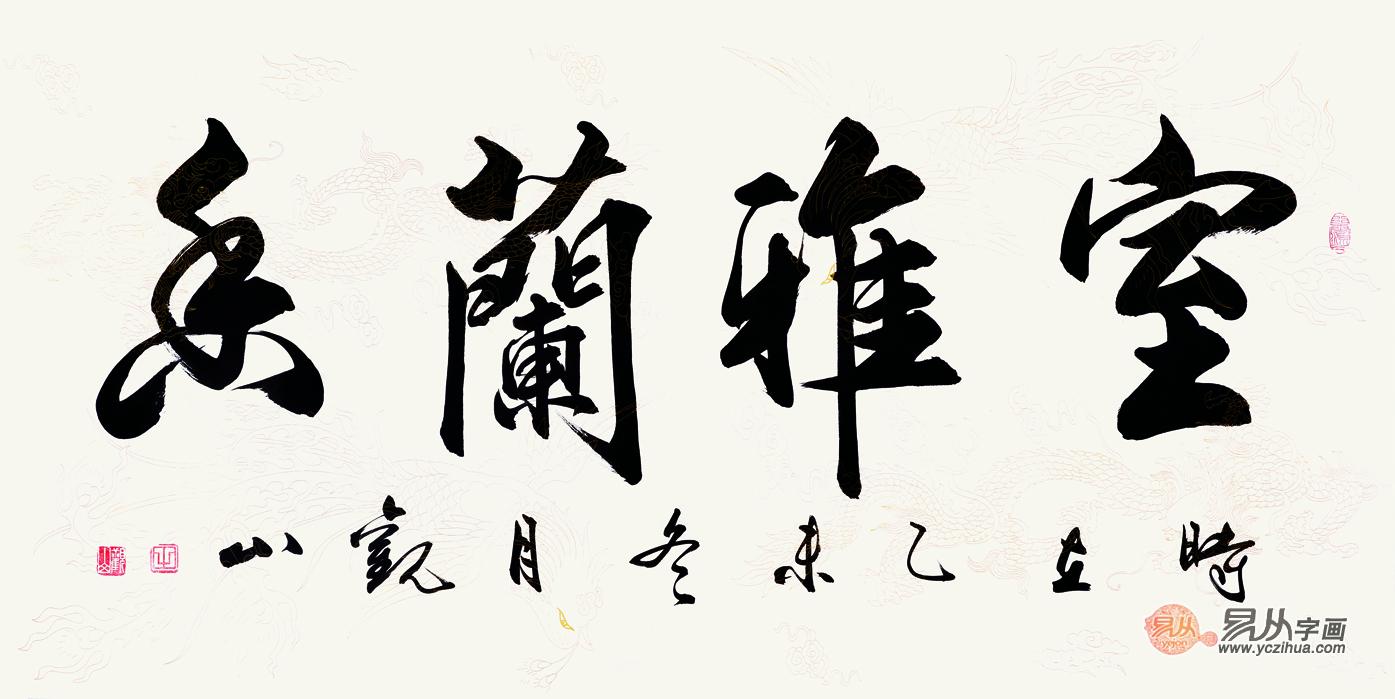 室雅蘭香
時在乙未冬月觀山
觀山
易从
易从字画
www.yczihua.com